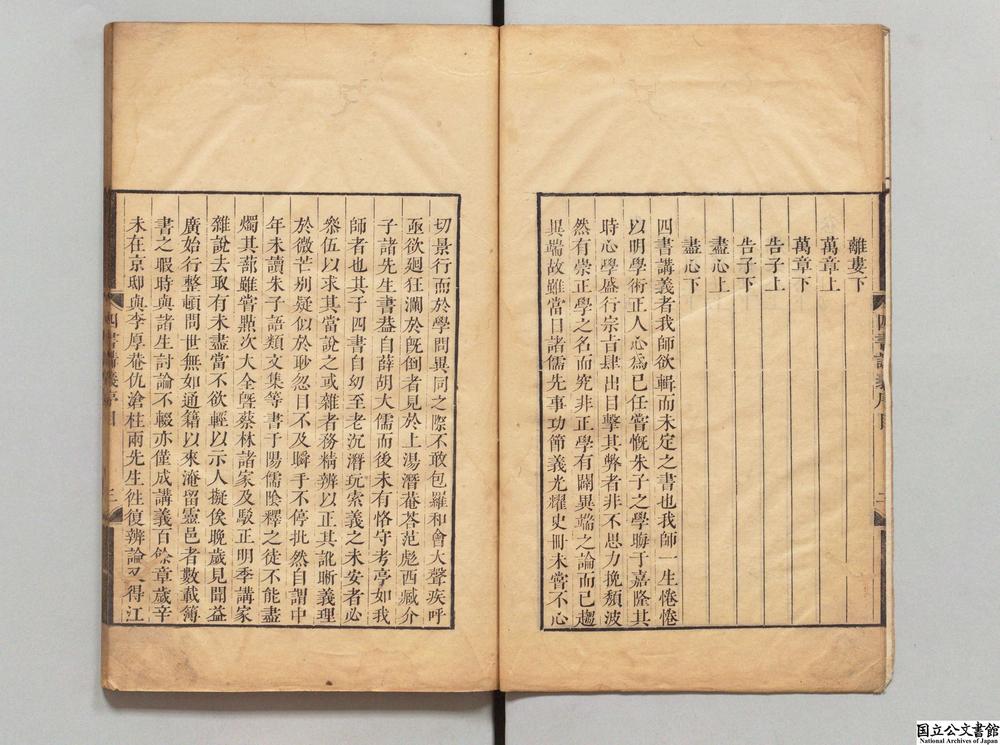 離婁下
萬章上
萬章下
告子上
告子下
盡心上
盡心下
四書講義者我師欲輯而未定之書也我師一生惓惓
以明學術正人心爲已任嘗慨朱子之學晦于嘉隆其
時心學盛行宗吉肆出目擊其弊者非不思力挽頽波
然有崇正學之名而究非正學有闢異端之論而已趨
異端故雖當日諸儒先事功節義光耀史冊未嘗不心
四書講義序目
二
切景行而於學問異同之際不敢包羅和會大聲疾呼
亟欲廻狂瀾於旣倒者見於上湯潛菴荅范彪西臧介
子諸先生書葢自薛胡大儒而後未有恪守考亭如我
師者也其于四書自幼至老沉潛玩索義之未安者必
叅伍以求其當說之或雜者務精辨以正其訛晰義理
於微芒别疑似於眇忽目不及瞬手不停批然自謂中
年未讀朱子語類文集等書于陽儒陰釋之徒不能盡
燭其蔀雖嘗㸃次大全曁蔡林諸家及駁正明季講家
雜說去取有未盡當不欲輕以示人擬俟晚歲見聞益
廣始行整頓問世無如通籍以來淹留靈邑者數載簿
書之暇時與諸生討論不輟亦僅成講義百餘章歲辛
未在京邸與李厚菴仇滄柱兩先生徃復辨論又得江
四書講義序目
三
国立公文書館
National Archives of Japan